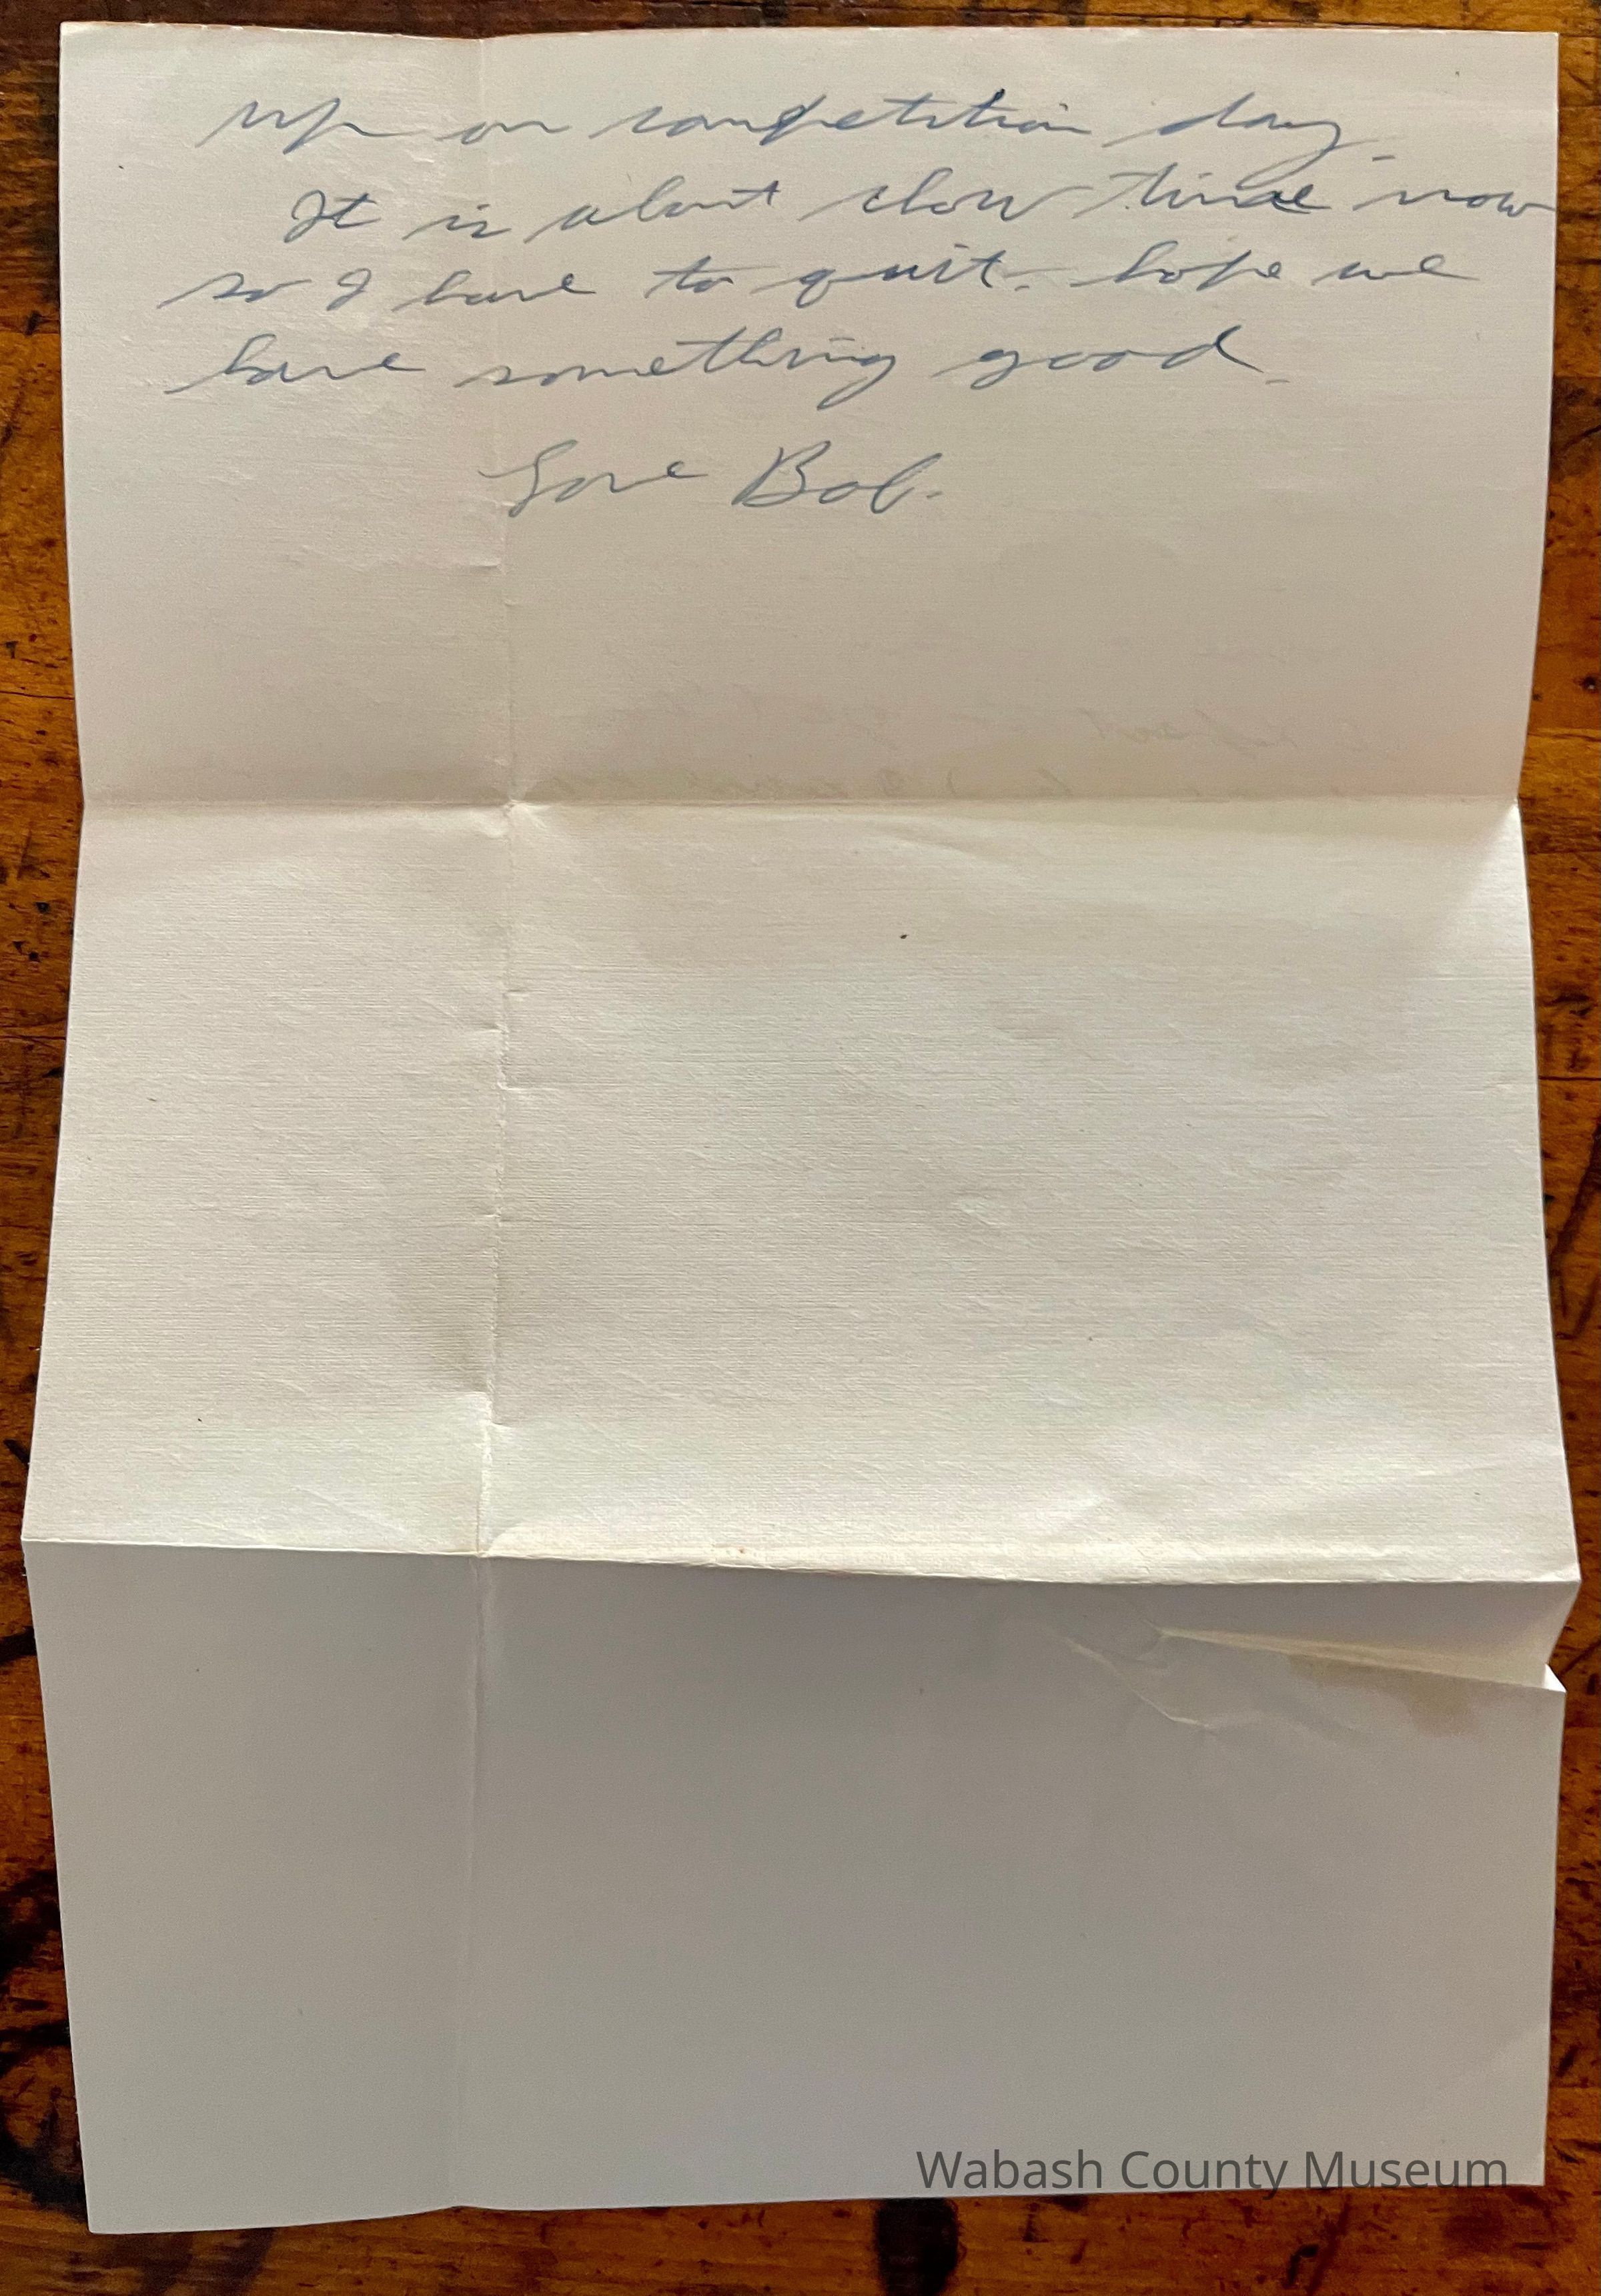 up on competition day.
It is about show time now
so I have to quit. hope we
have something good.
Love Bob.
Wabash County Museum